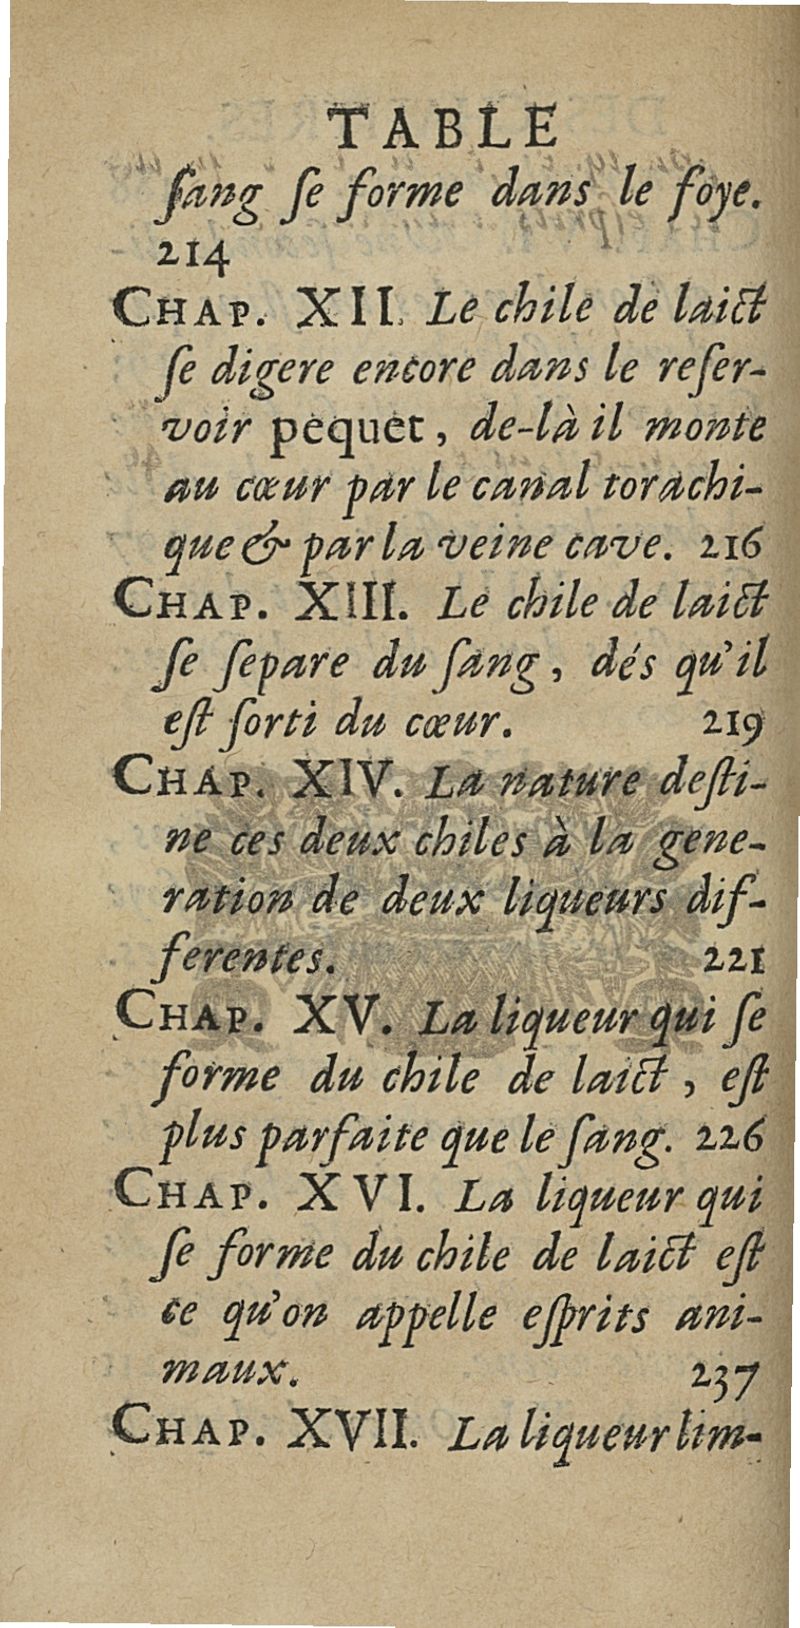 TABLE
ſang ſe forme dans le foye.
214
CHAP. XII. Le chile de laict
ſe digere encore dans le reſer-
voir pequet, de-là il monte
au cœur par le canal torachi-
que & par la veine cave. 216
CHAP. XIII. Le chile de laict
ſe ſepare du ſang, dés qu'il
eſt ſorti du cœur. 219
CHAP. XIV. La nature deſti-
ne ces deux chiles à la gene-
ration de deux liqueurs dif-
ferentes. 221
CHAP. XV. La liqueur qui ſe
forme du chile de laict, eſt
plus parfaite que le ſang. 226
CHAP. XVI. La liqueur qui
ſe forme du chile de laict eſt
ce qu'on appelle eſprits ani-
maux. 237
CHAP. XVII. La liqueur lim-